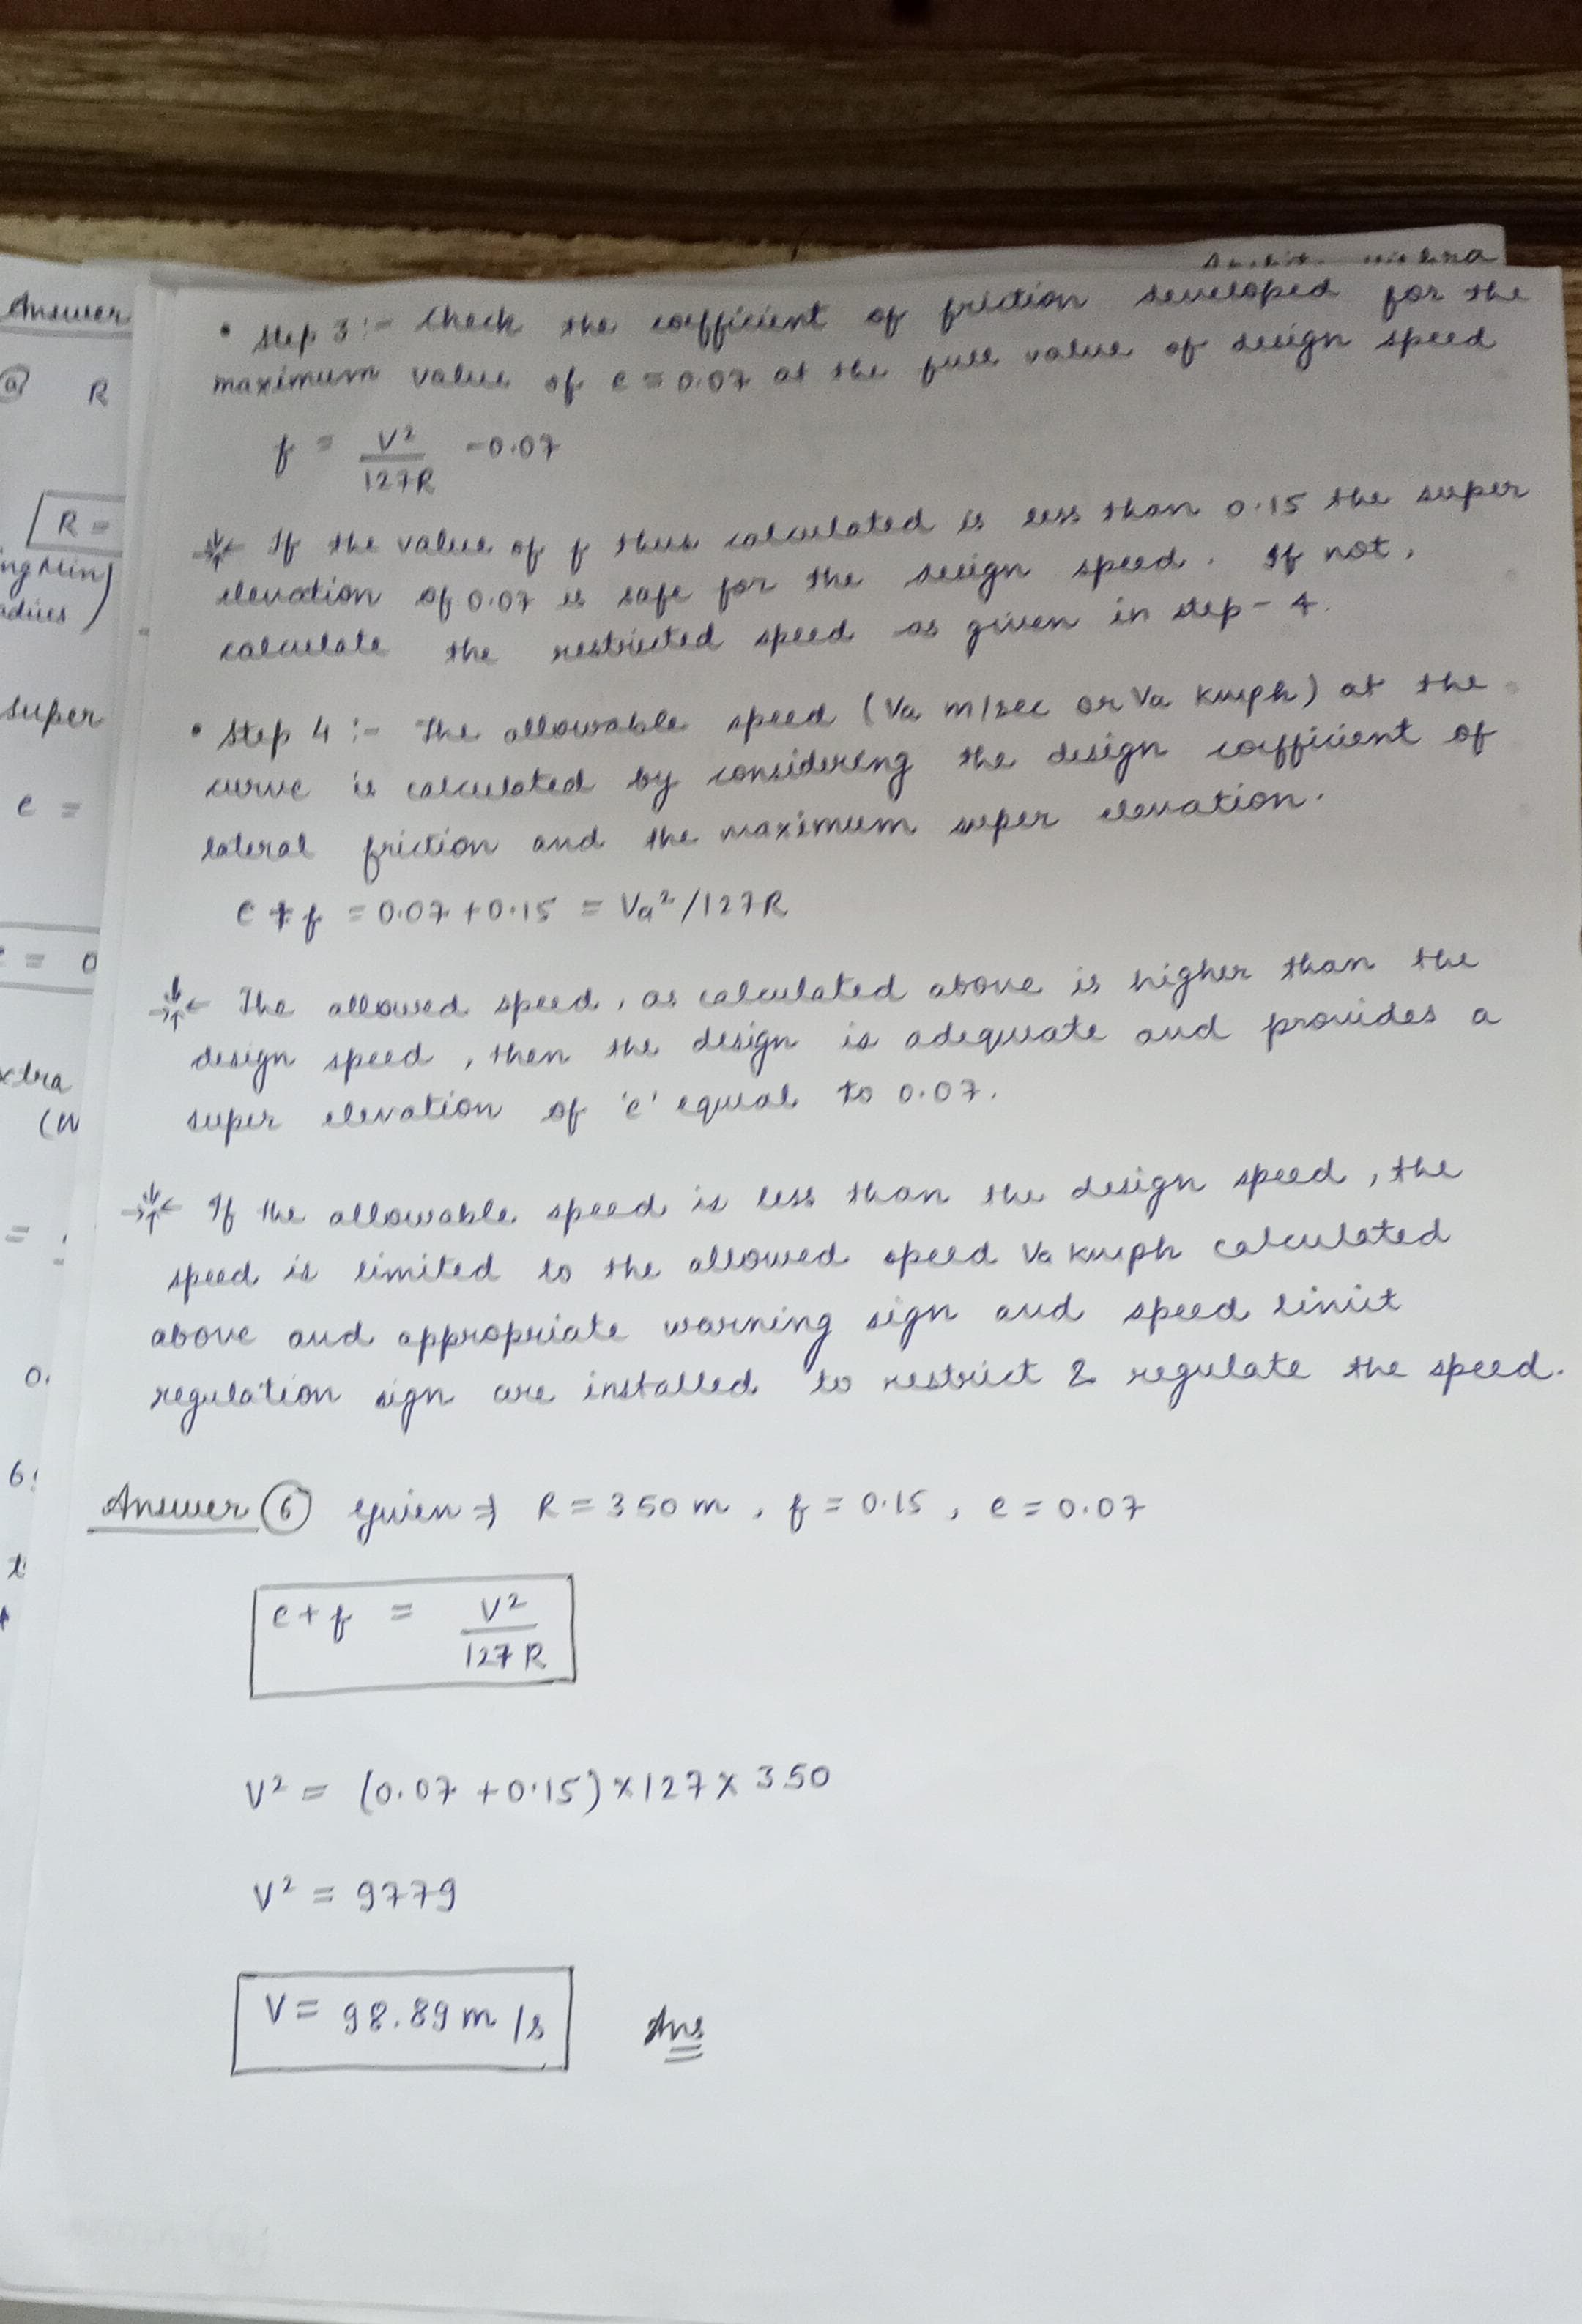 Answer
(a) R
R =
super
e =
= 0
xtra
=
0.
6
• Step 3 :- Check the coefficient of friction developed for the
maximum value of e = 0.07 at the full value of design speed
f = V²/127R - 0.07
If the value of f thus calculated is less than 0.15 the super
elevation of 0.07 is safe for the design speed. If not,
calculate the restricted speed as given in step - 4.
• Step 4 :- The allowable speed (Va m/sec or Va kmph) at the
curve is calculated by considering the design coefficient of
lateral friction and the maximum super elevation.
e + f = 0.07 + 0.15 = Va²/127R
The allowed speed, as calculated above is higher than the
design speed, then the design is adequate and provides a
super elevation of 'e' equal to 0.07.
If the allowable speed is less than the design speed, the
speed is limited to the allowed speed Va kmph calculated
above and appropriate warning sign and speed limit
regulation sign are installed to restrict & regulate the speed.
Answer (6) Given ⇒ R = 350 m, f = 0.15, e = 0.07
e + f = V²/127 R
V² = (0.07 + 0.15) × 127 × 350
V² = 9779
V = 98.89 m/s Ans